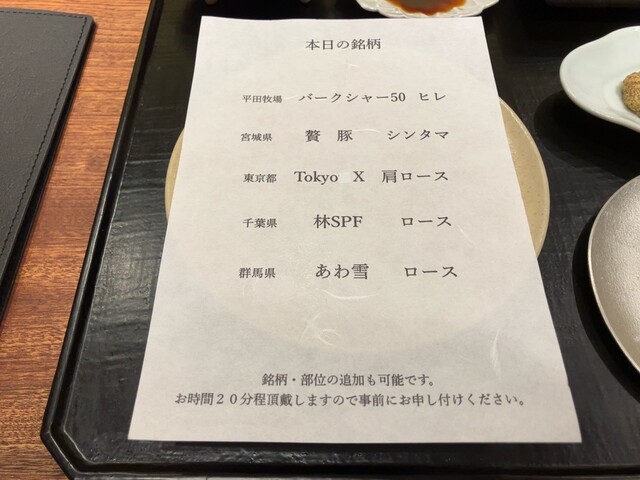 本日の銘柄
平田牧場 バークシャー50 ヒレ
宮城県 贅豚 シンタマ
東京都 Tokyo X 肩ロース
千葉県 林SPF ロース
群馬県 あわ雪 ロース
銘柄・部位の追加も可能です。
お時間20分程頂戴しますので事前にお申し付けください。